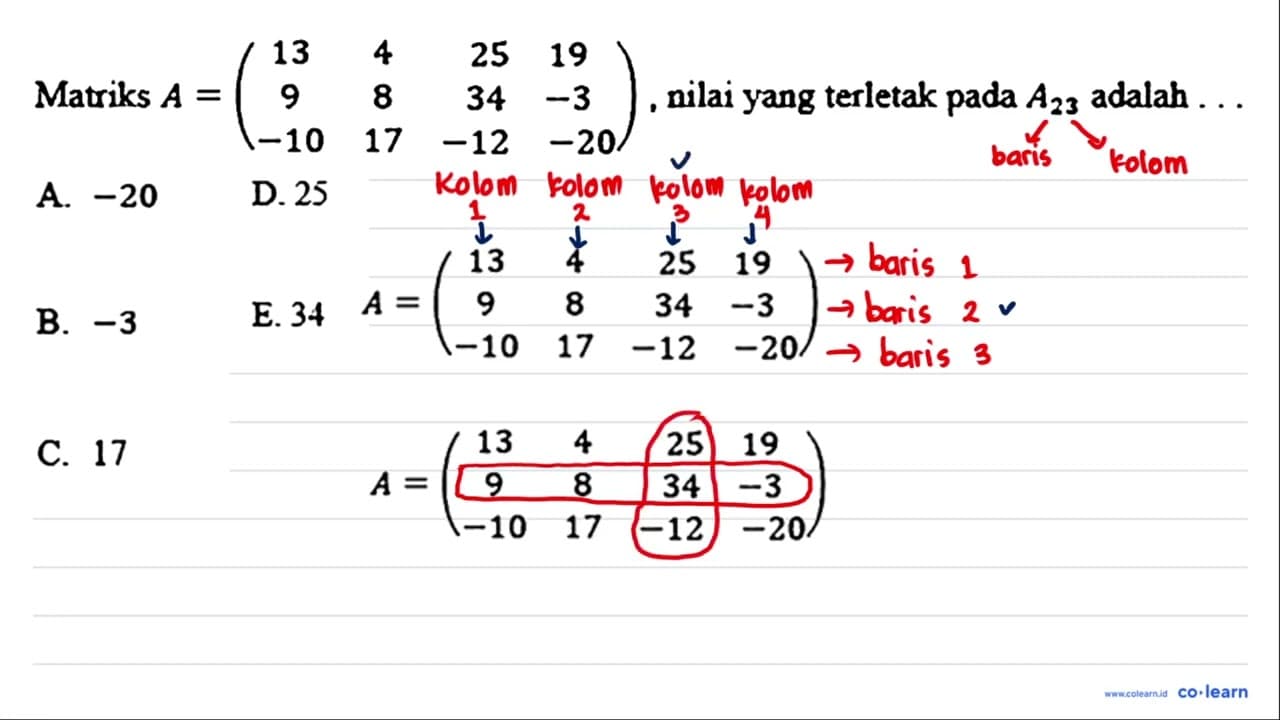 Matriks A = ( 13 4 25 19
9 8 34 −3
−10 17 −12 −20 ) , nilai yang terletak pada A₂₃ adalah . . .
baris kolom
A. −20 D. 25
B. −3 E. 34
C. 17
Kolom 1 kolom 2 kolom 3 kolom 4
A = ( 13 4 25 19 → baris 1
9 8 34 −3 → baris 2
−10 17 −12 −20 ) → baris 3
A = ( 13 4 25 19
9 8 34 −3
−10 17 −12 −20 )
www.colearn.id co·learn